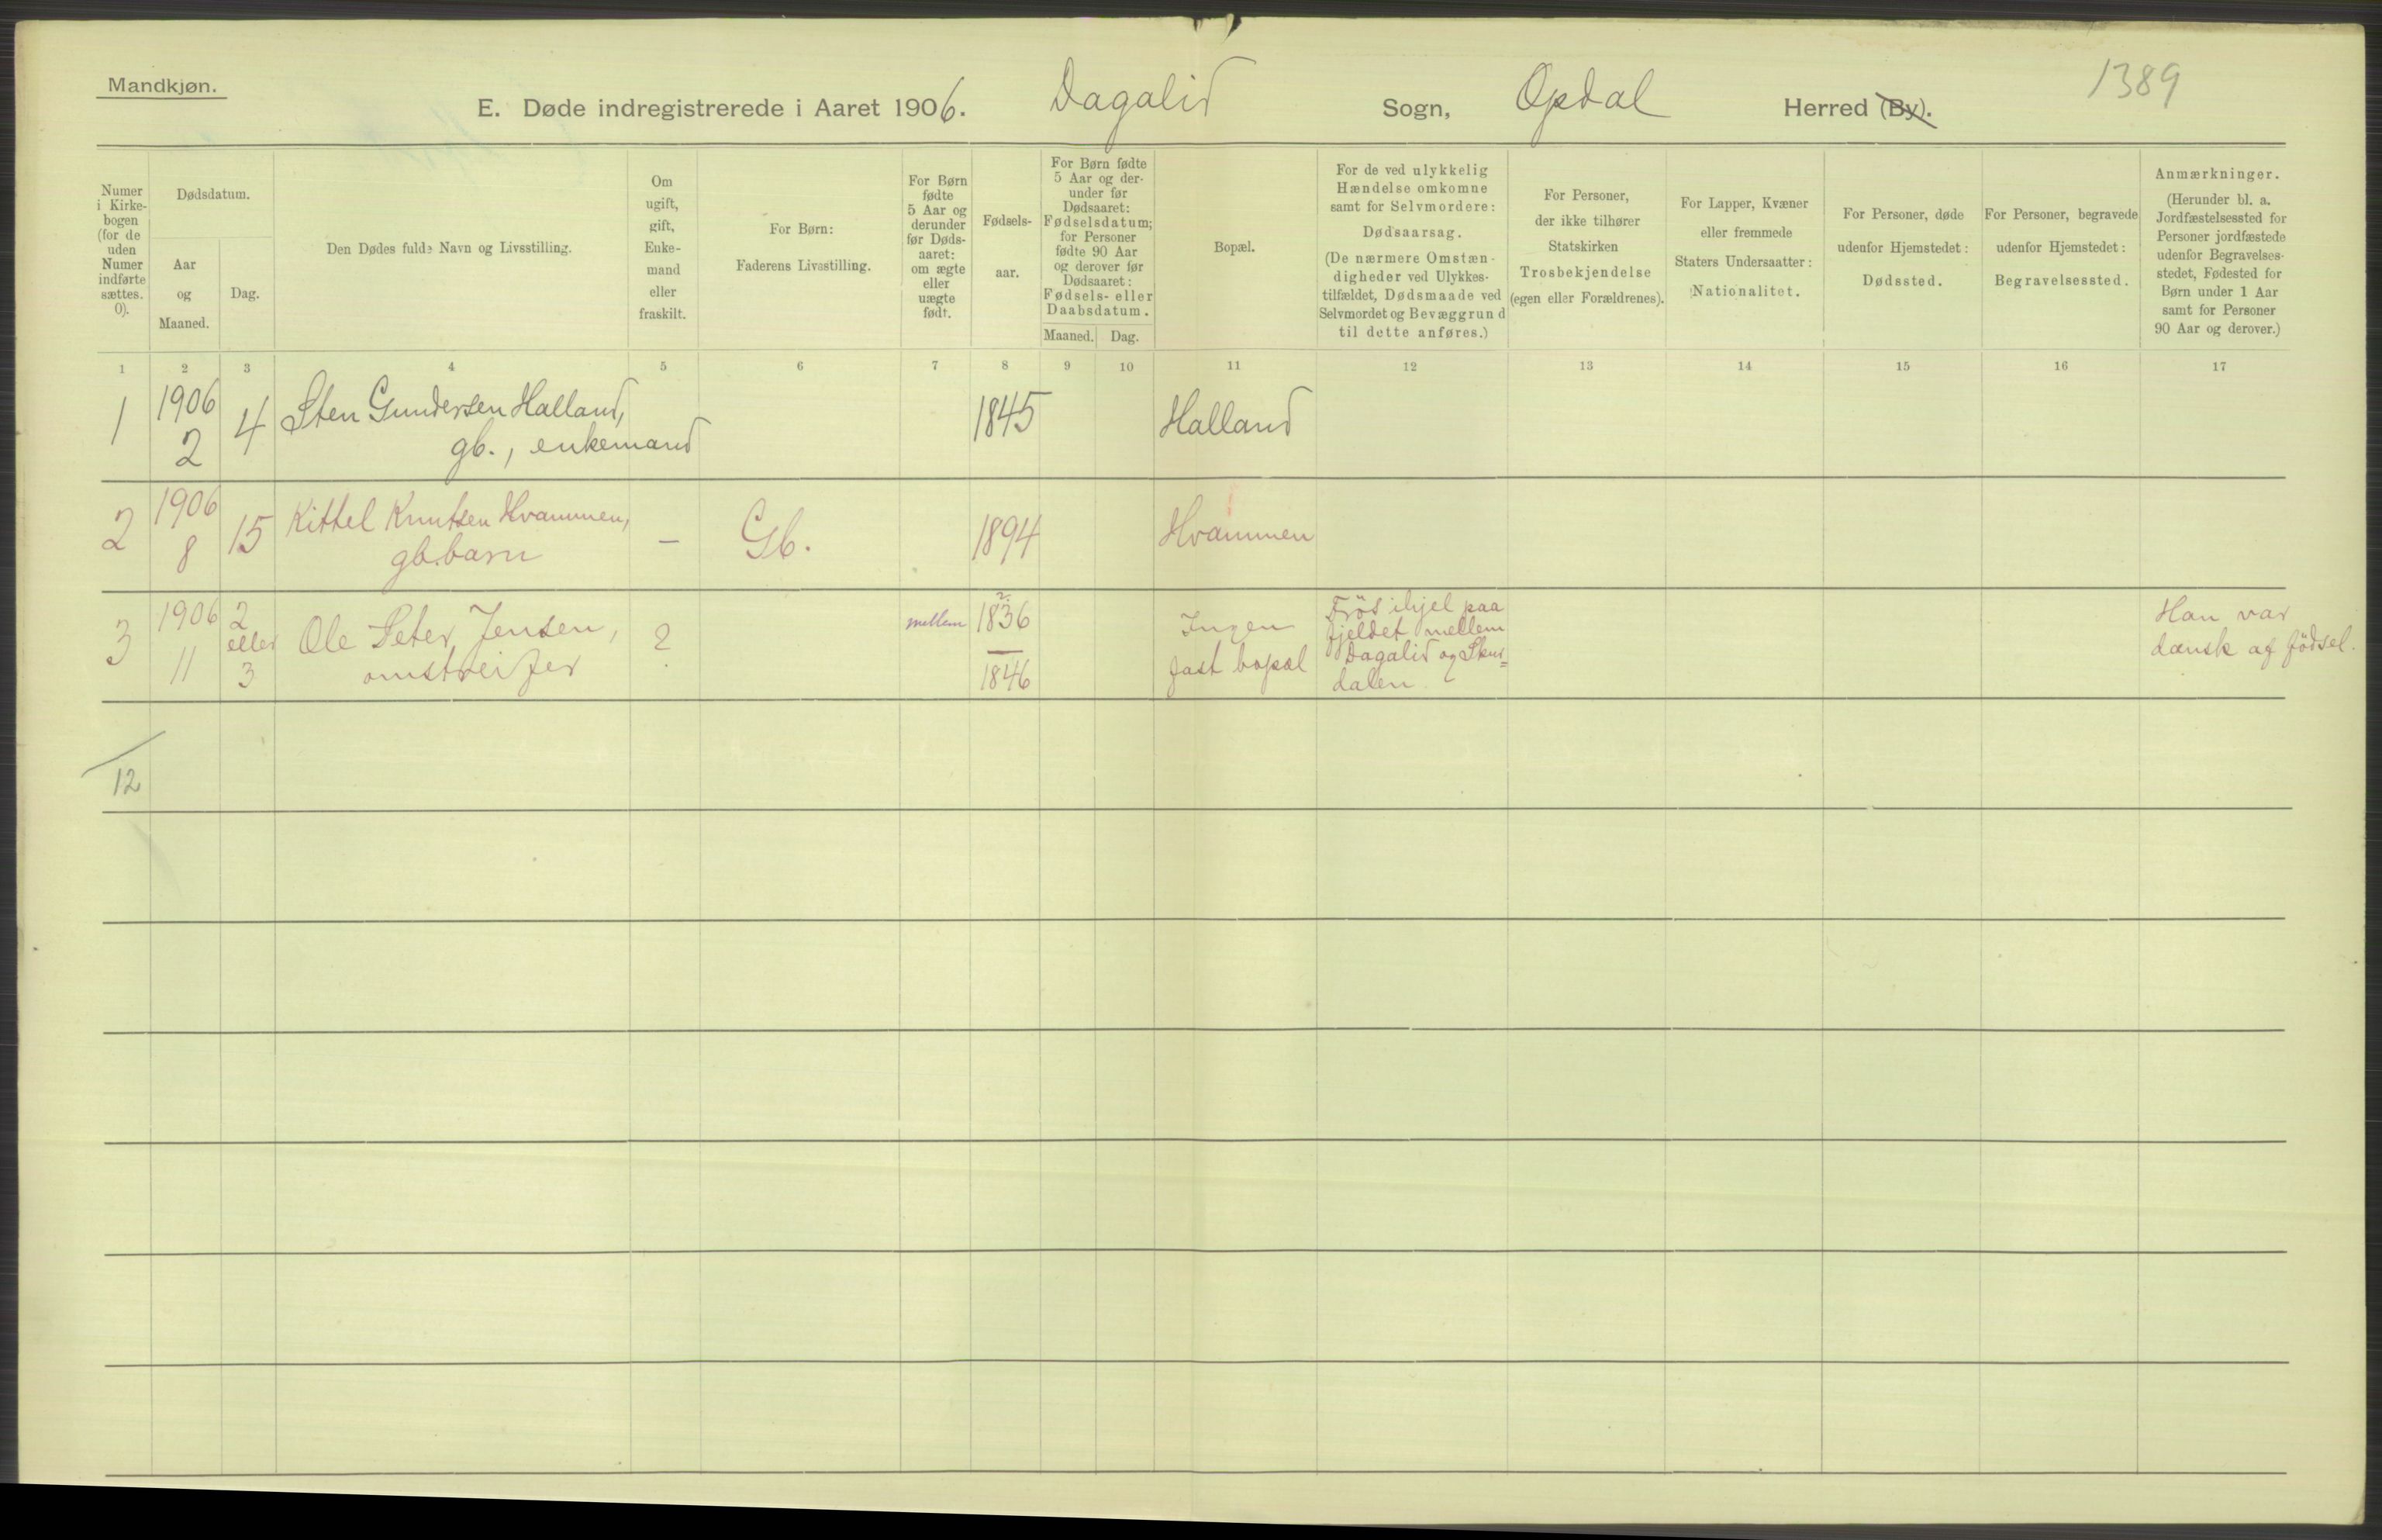 Mandkjøn.
E. Døde indregistrerede i Aaret 1906. Dagalid Sogn, Opdal Herred (By).
1389
Numer
i Kirke-
bogen
(for de
uden
Numer
indførte
sættes.
0).
Dødsdatum.
Aar
og
Maaned.
Dag.
Den Dødes fulde Navn og Livsstilling.
Om
ugift,
gift,
Enke-
mand
eller
fraskilt.
For Børn:
Faderens Livsstilling.
For Børn
fødte
5 Aar og
derunder
før Døds-
aaret:
om ægte
eller
uægte
født.
Fødsels-
aar.
For Børn fødte
5 Aar og der-
under før
Dødsaaret:
Fødselsdatum;
for Personer
fødte 90 Aar
og derover før
Dødsaaret:
Fødsels- eller
Daabsdatum.
Maaned. Dag.
Bopæl.
For de ved ulykkelig
Hændelse omkomne
samt for Selvmordere:
Dødsaarsag.
(De nærmere Omstæn-
digheder ved Ulykkes-
tilfældet, Dødsmaade ved
Selvmordet og Bevæggrund
til dette anføres.)
For Personer,
der ikke tilhører
Statskirken
Trosbekjendelse
(egen eller Forældrenes).
For Lapper, Kvæner
eller fremmede
Staters Undersaatter:
Nationalitet.
For Personer, døde
udenfor Hjemstedet:
Dødssted.
For Personer, begravede
udenfor Hjemstedet:
Begravelsessted.
Anmærkninger.
(Herunder bl. a.
Jordfæstelsessted for
Personer jordfæstede
udenfor Begravelses-
stedet, Fødested for
Børn under 1 Aar
samt for Personer
90 Aar og derover.)
1 2 3 4 5 6 7 8 9 10 11 12 13 14 15 16 17
1 1906 2 4 Sten Gundersen Halland, 1845 Halland
gb., enkemand
2 1906 8 15 Kittel Knutsen Hvammen, – Gb. 1894 Hvammen
gb.barn
3
1906
11
2
eller
3
Ole Peter Jensen,
omstreifer
?
mellem
1836
1846
Ingen
fast bopæl
Frös ihjel paa
fjeldet mellem
Dagalid og Skur=
dalen.
Han var
dansk af födsel.
12